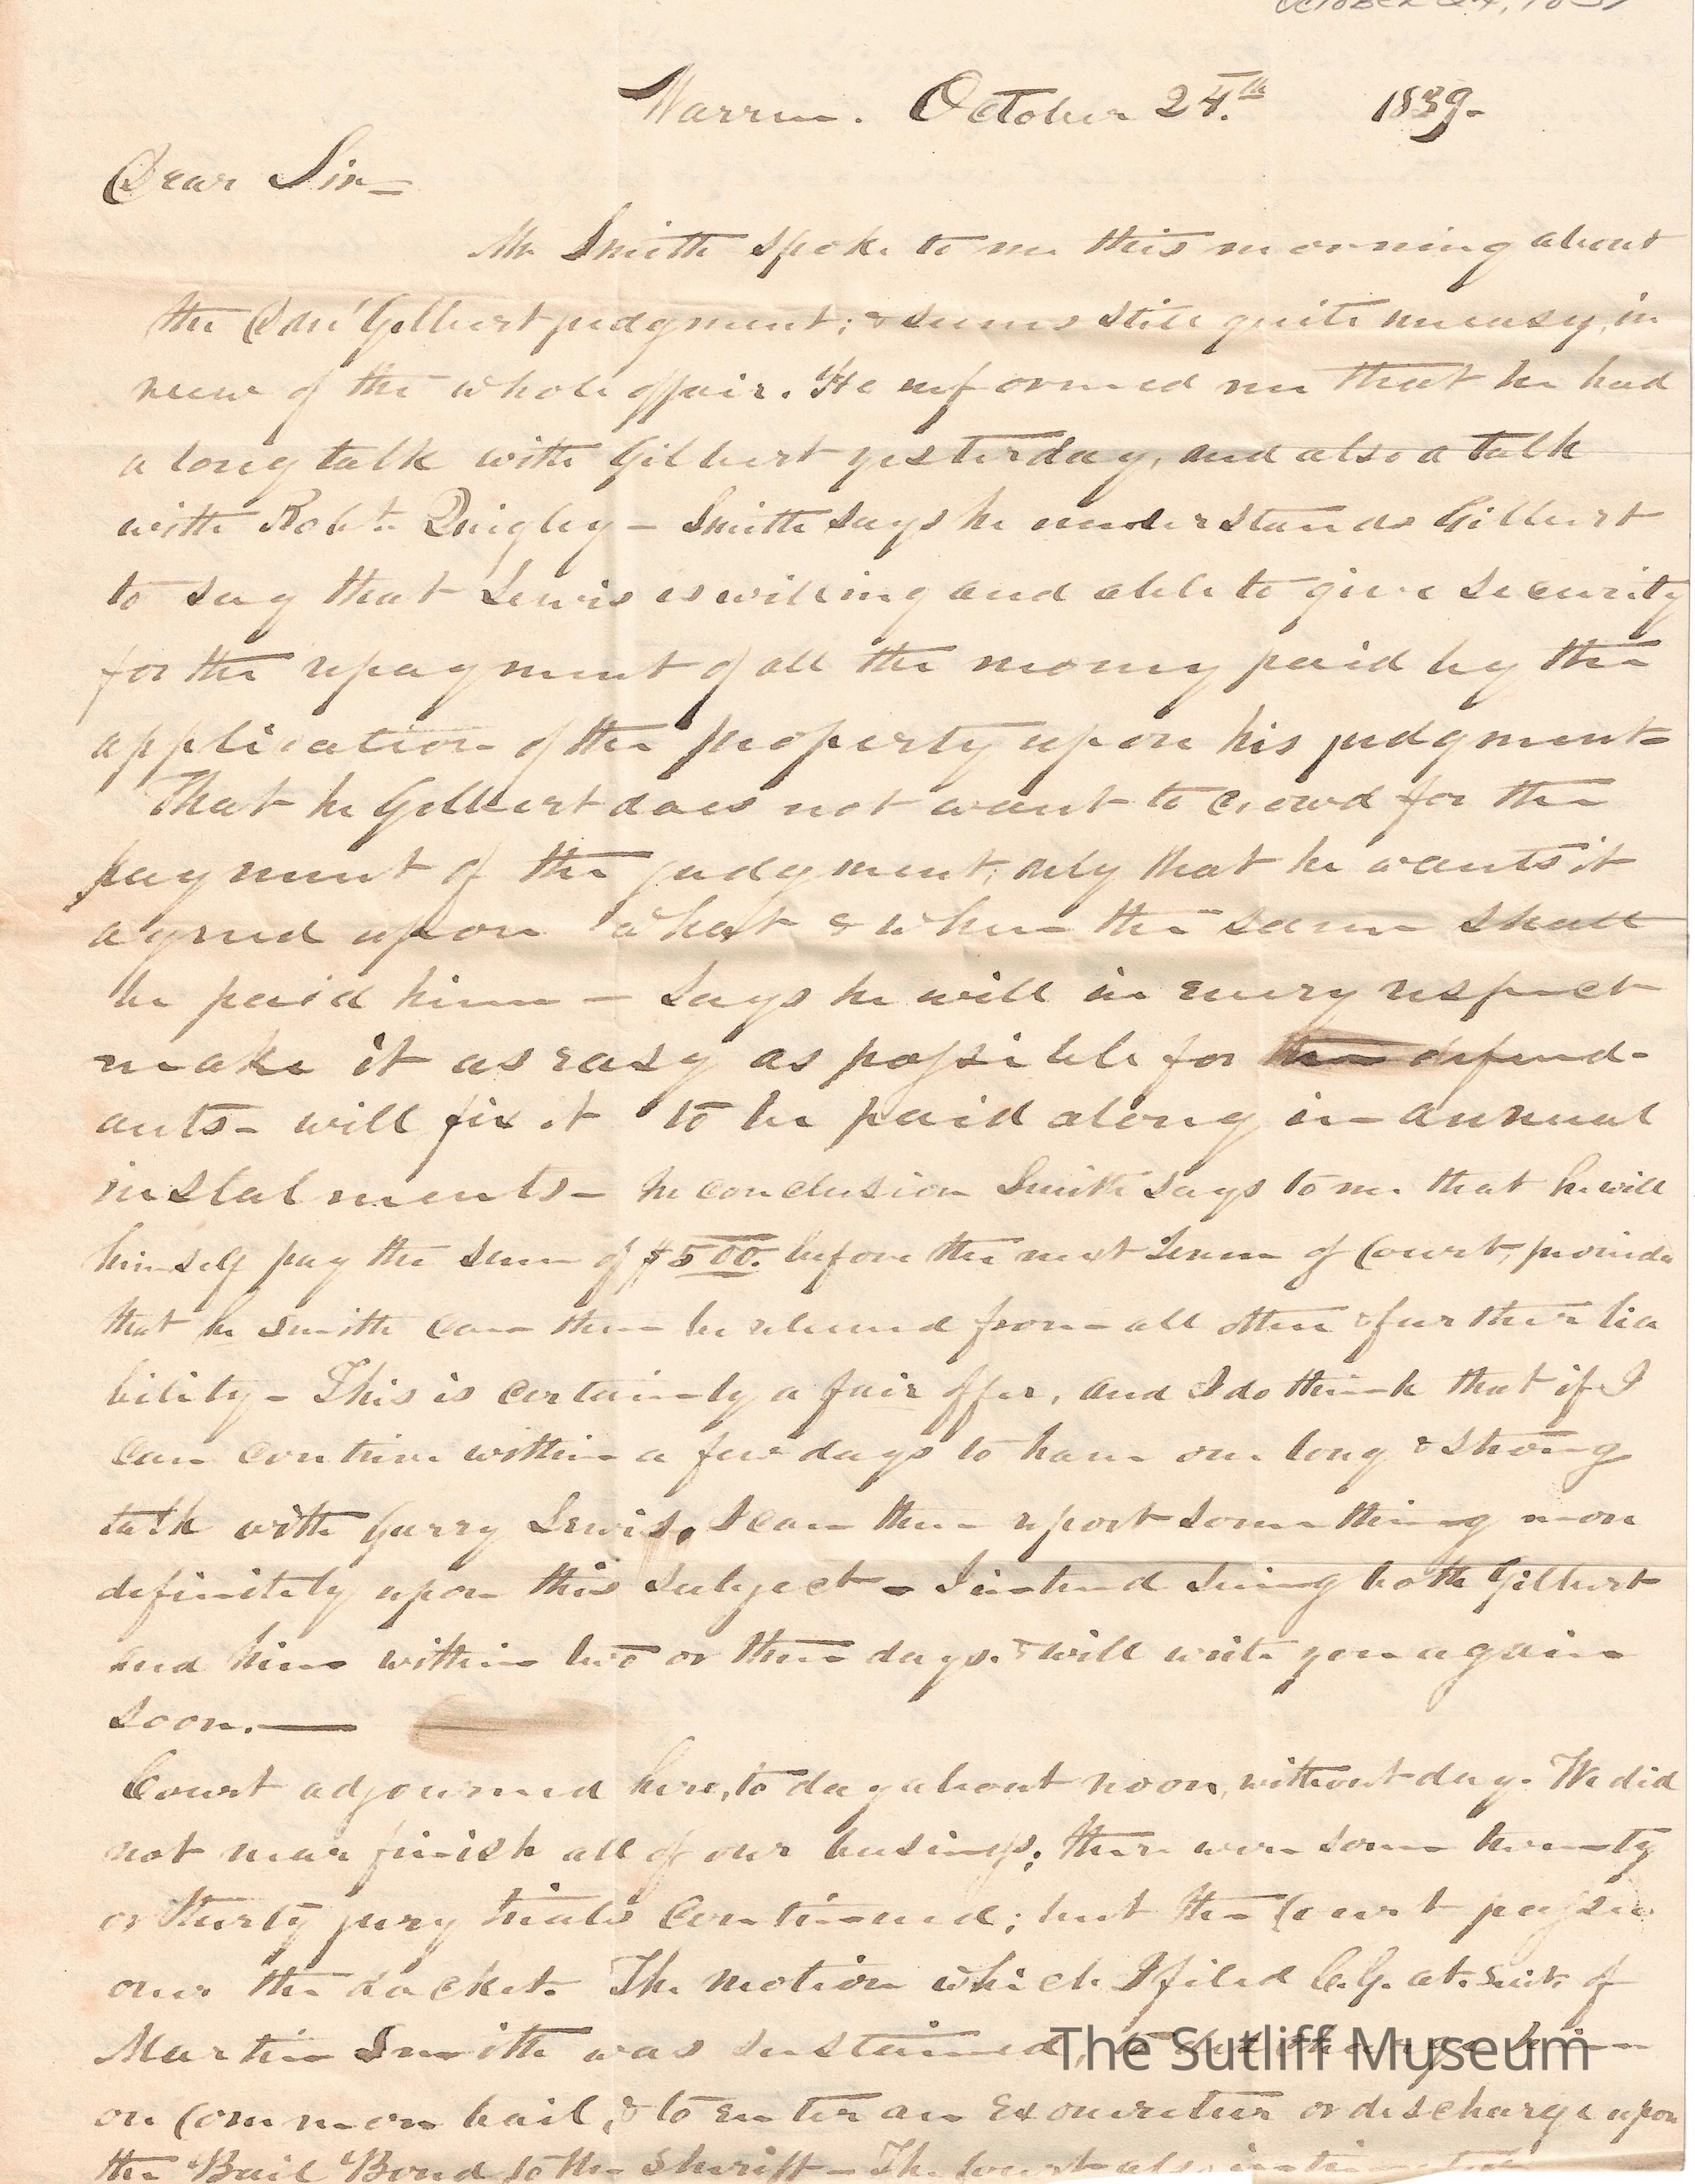 October 24, 1839
Warren. October 24.th 1839.
Dear Sir—
Mr Smith spoke to me this morning about
the Gilbert judgment; & seems still quite uneasy, in
view of the whole affair. He informed me that he had
a long talk with Gilbert yesterday, and also a talk
with Robt. Quigley — Smith says he understands Gilbert
to say that Lewis is willing and able to give security
for the repayment of all the money paid by the
application of the property upon his judgment—
That he Gilbert does not want to crowd for the
payment of the judgment, only that he wants it
agreed upon what & when the same shall
be paid him — Says he will in every respect
make it as easy as possible for the defend-
ants— will fix it to be paid along in annual
instalments— In conclusion Smith says to me that he will
himself pay the sum of $500. before the next Term of Court, provided
that he Smith can then be released from all other & further lia
bility— This is certainly a fair offer, and I do think that if I
can contrive within a few days to have one long & strong
talk with Garry Lewis, I can then report something more
definitely upon this subject— I intend seeing both Gilbert
and him within two or three days. & will write you again
soon.—
Court adjourned here, to day about noon, without day. We did
not near finish all of our business; there were some twenty
or thirty jury trials continued; but the Court passed
over the docket. The motion which I filed at. Suit of
Martin Smith was sustained, to discharge him
on Common bail, & to enter an exoneretur or discharge upon
the Bail Bond to the Sheriff— The Court also intimated
The Sutliff Museum